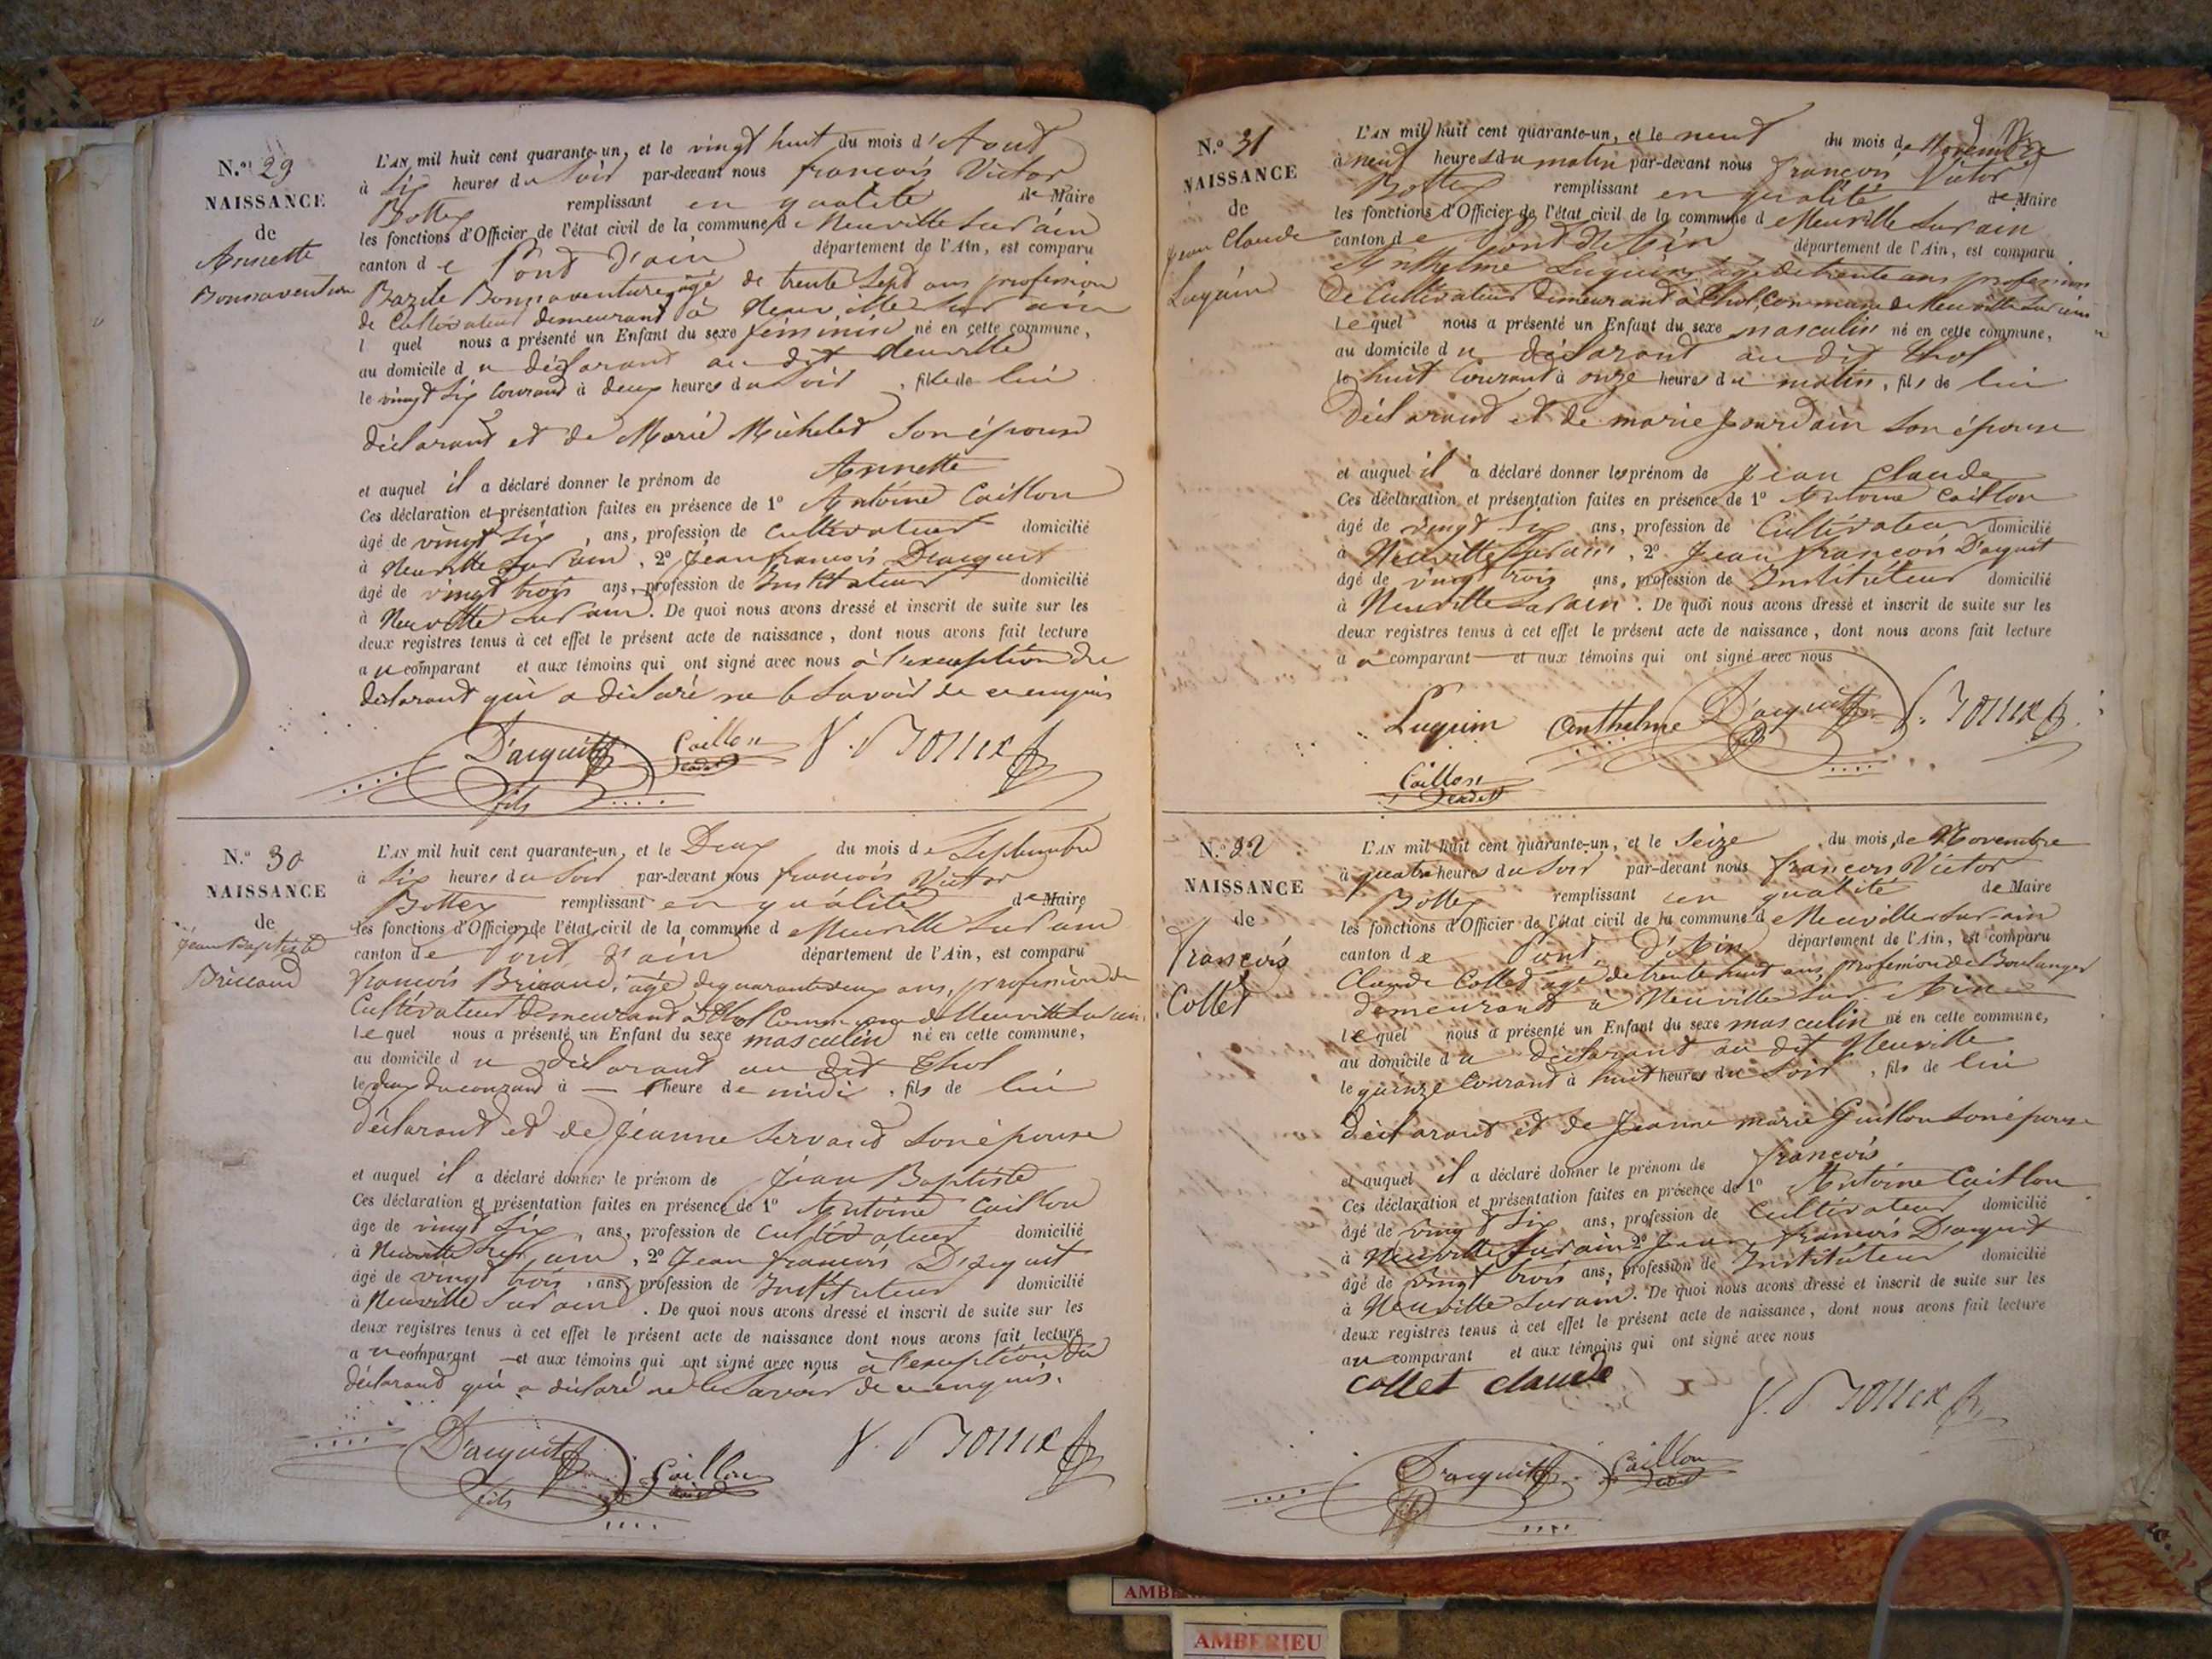 N.° 29
NAISSANCE
de
Annette
Bonnaventure
L'AN mil huit cent quarante-un, et le vingt huit du mois d'Aout
à Six heures du Soir par-devant nous françois Victor
Bottex remplissant en qualité de Maire
les fonctions d'Officier de l'état civil de la commune de Neuville Sur ain
canton de Pont d'ain département de l'Ain, est comparu
Bonnaventure, agé de trente Sept ans profession
de Cultivateur demeurant à Neuville Sur ain
l quel nous a présenté un Enfant du sexe féminin né en cette commune,
au domicile du déclarant au dit Neuville
le vingt Six Courant à deux heures du Soir, fille de lui
déclarant et de Marie Michelet Son épouse
et auquel il a déclaré donner le prénom de Annette
Ces déclaration et présentation faites en présence de 1° Antoine Caillon
âgé de vingt Six, ans, profession de Cultivateur domicilié
à Neuville Sur ain, 2° Jean françois D'acquit
âgé de vingt trois ans, profession de Instituteur domicilié
à Neuville Sur ain. De quoi nous avons dressé et inscrit de suite sur les
deux registres tenus à cet effet le présent acte de naissance, dont nous avons fait lecture
au comparant et aux témoins qui ont signé avec nous à l'exception du
déclarant qui a déclaré ne le Savoir de ce enquis
D'acquit fils Caillon cadet V. Bottex
N.° 30
NAISSANCE
de
Jean Baptiste
Bricaud
L'AN mil huit cent quarante-un, et le Deux du mois de Septembre
à Six heures du Soir par-devant nous françois Victor
Bottex remplissant en qualité de Maire
les fonctions d'Officier de l'état civil de la commune de Neuville Sur ain
canton de Pont d'ain département de l'Ain, est comparu
François Bricaud, agé de quarante deux ans, profession de
Cultivateur demeurant à Thol Commune de Neuville Sur ain,
lequel nous a présenté un Enfant du sexe masculin né en cette commune,
au domicile du déclarant au dit Thol
le deux du courant à — heure de midi, fils de lui
déclarant et de Jeanne Servand Son épouse
et auquel il a déclaré donner le prénom de Jean Baptiste
Ces déclaration et présentation faites en présence de 1° Antoine Caillon
âgé de vingt Six, ans, profession de Cultivateur domicilié
à Neuville Sur ain, 2° Jean françois D'acquit
âgé de vingt trois, ans, profession de Instituteur domicilié
à Neuville Sur ain. De quoi nous avons dressé et inscrit de suite sur les
deux registres tenus à cet effet le présent acte de naissance dont nous avons fait lecture
au comparant et aux témoins qui ont signé avec nous à l'exception du
déclarant qui a déclaré ne le Savoir de ce enquis.
D'acquit fils Caillon V. Bottex
N.° 31
NAISSANCE
de
Jean Claude
Luguin
L'AN mil huit cent quarante-un, et le neuf du mois de Novembre
à neuf heures du matin par-devant nous françois Victor
Bottex remplissant en qualité de Maire
les fonctions d'Officier de l'état civil de la commune de Neuville Sur ain
canton de Pont d'Ain département de l'Ain, est comparu
Anthelme Luguin, agé de trente ans profession
de Cultivateur demeurant à Thol, Commune de Neuville Sur ain
Lequel nous a présenté un Enfant du sexe masculin né en cette commune,
au domicile du déclarant au dit Thol
le huit Courant à onze heures du matin, fils de lui
Déclarant et de marie Jourdain Son épouse
et auquel il a déclaré donner les prénom de Jean Claude
Ces déclaration et présentation faites en présence de 1° Antoine Caillon
âgé de vingt Six ans, profession de Cultivateur domicilié
à Neuville Sur ain, 2° Jean françois D'acquit
âgé de vingt trois ans, profession de Instituteur domicilié
à Neuville Sur ain. De quoi nous avons dressé et inscrit de suite sur les
deux registres tenus à cet effet le présent acte de naissance, dont nous avons fait lecture
au comparant et aux témoins qui ont signé avec nous
Luguin Anthelme D'acquit fils V. Bottex
Caillon cadet
N.° 32
NAISSANCE
de
François
Collet
L'AN mil huit cent quarante-un, et le Seize du mois de Novembre
à quatre heures du Soir par-devant nous françois Victor
Bottex remplissant en qualité de Maire
les fonctions d'Officier de l'état civil de la commune de Neuville Sur-ain
canton de Pont d'Ain département de l'Ain, est comparu
Claude Collet agé de trente huit ans, profession de Boulanger
demeurant à Neuville Sur Ain
lequel nous a présenté un Enfant du sexe masculin né en cette commune,
au domicile du déclarant au dit Neuville
le quinze Courant à huit heures du Soir, fils de lui
déclarant et de Jeanne marie Guillon Son épouse
et auquel il a déclaré donner le prénom de françois
Ces déclaration et présentation faites en présence de 1° Antoine Caillon
âgé de vingt Six ans, profession de Cultivateur domicilié
à Neuville Sur ain 2° Jean françois D'acquit
âgé de vingt trois ans, profession de Instituteur domicilié
à Neuville Sur ain. De quoi nous avons dressé et inscrit de suite sur les
deux registres tenus à cet effet le présent acte de naissance, dont nous avons fait lecture
au comparant et aux témoins qui ont signé avec nous
Collet Claude V. Bottex
D'acquit fils Caillon cadet
AMBERIEU